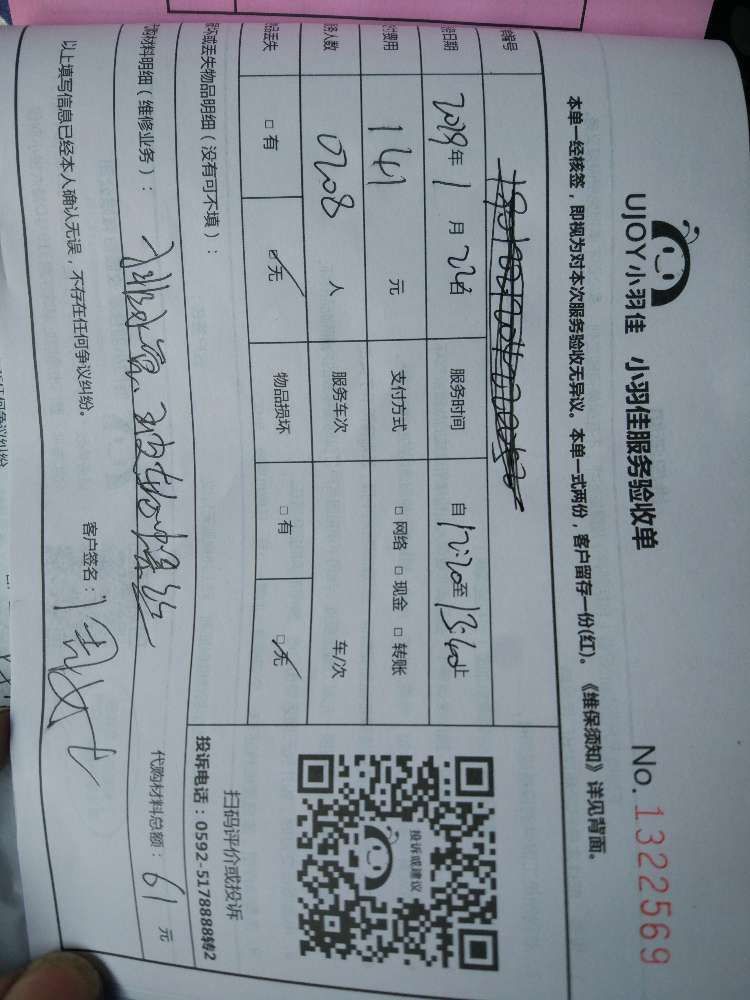 UJOY小羽佳 小羽佳服务验收单
No. 1322569
本单一经核签,即视为对本次服务验收无异议。本单一式两份,客户留存一份(红)。《维保须知》详见背面。
编号
日期 2019年 1 月 22日 服务时间 自 12:20至 13:40止
费用 141 元 支付方式 □ 网络 □ 现金 □ 转账
人数 0208 人 服务车次 车/次
品丢失 □ 有 □ 无 物品损坏 □ 有 □ 无
投诉或建议
扫码评价或投诉
投诉电话:0592-5178888转2
坏或丢失物品明细(没有可不填):
购材料明细(维修业务):
代购材料总额: 61 元
以上填写信息已经本人确认无误,不存在任何争议纠纷。 客户签名: